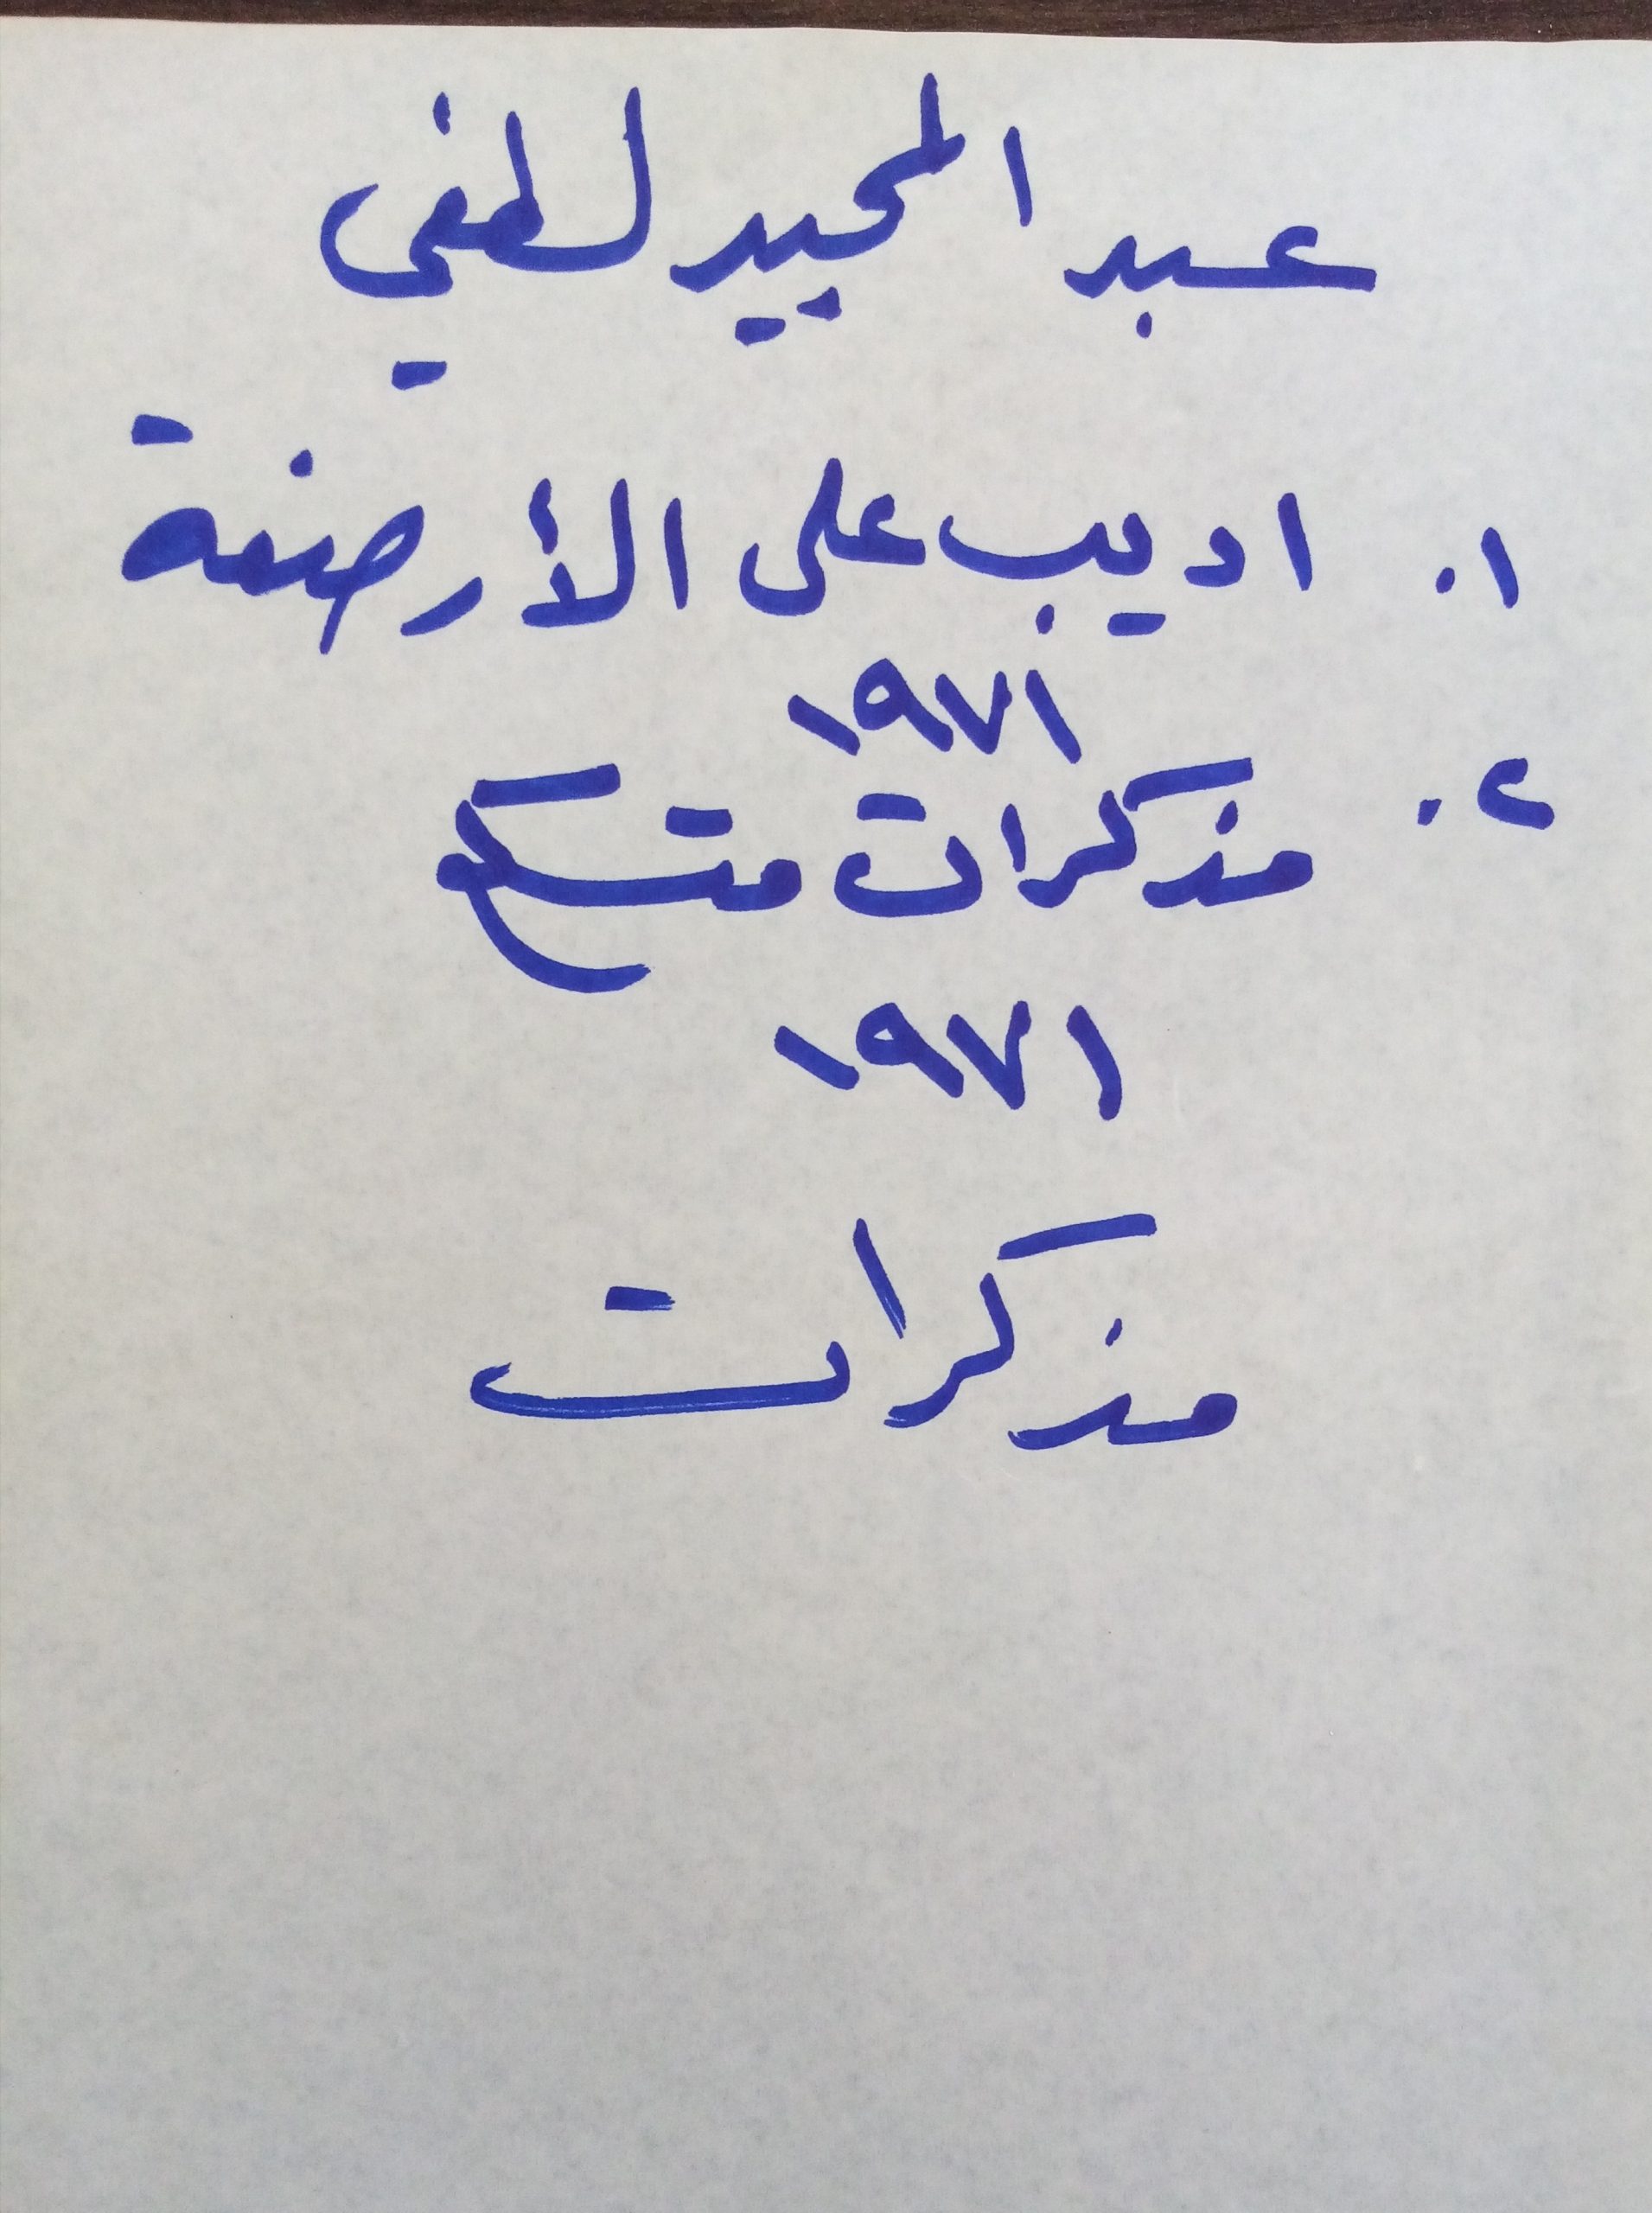 عبد المجيد لطفي
١. اديب على الأرصفة
١٩٧١
٢. مذكرات متسكع
١٩٧١
مذكرات